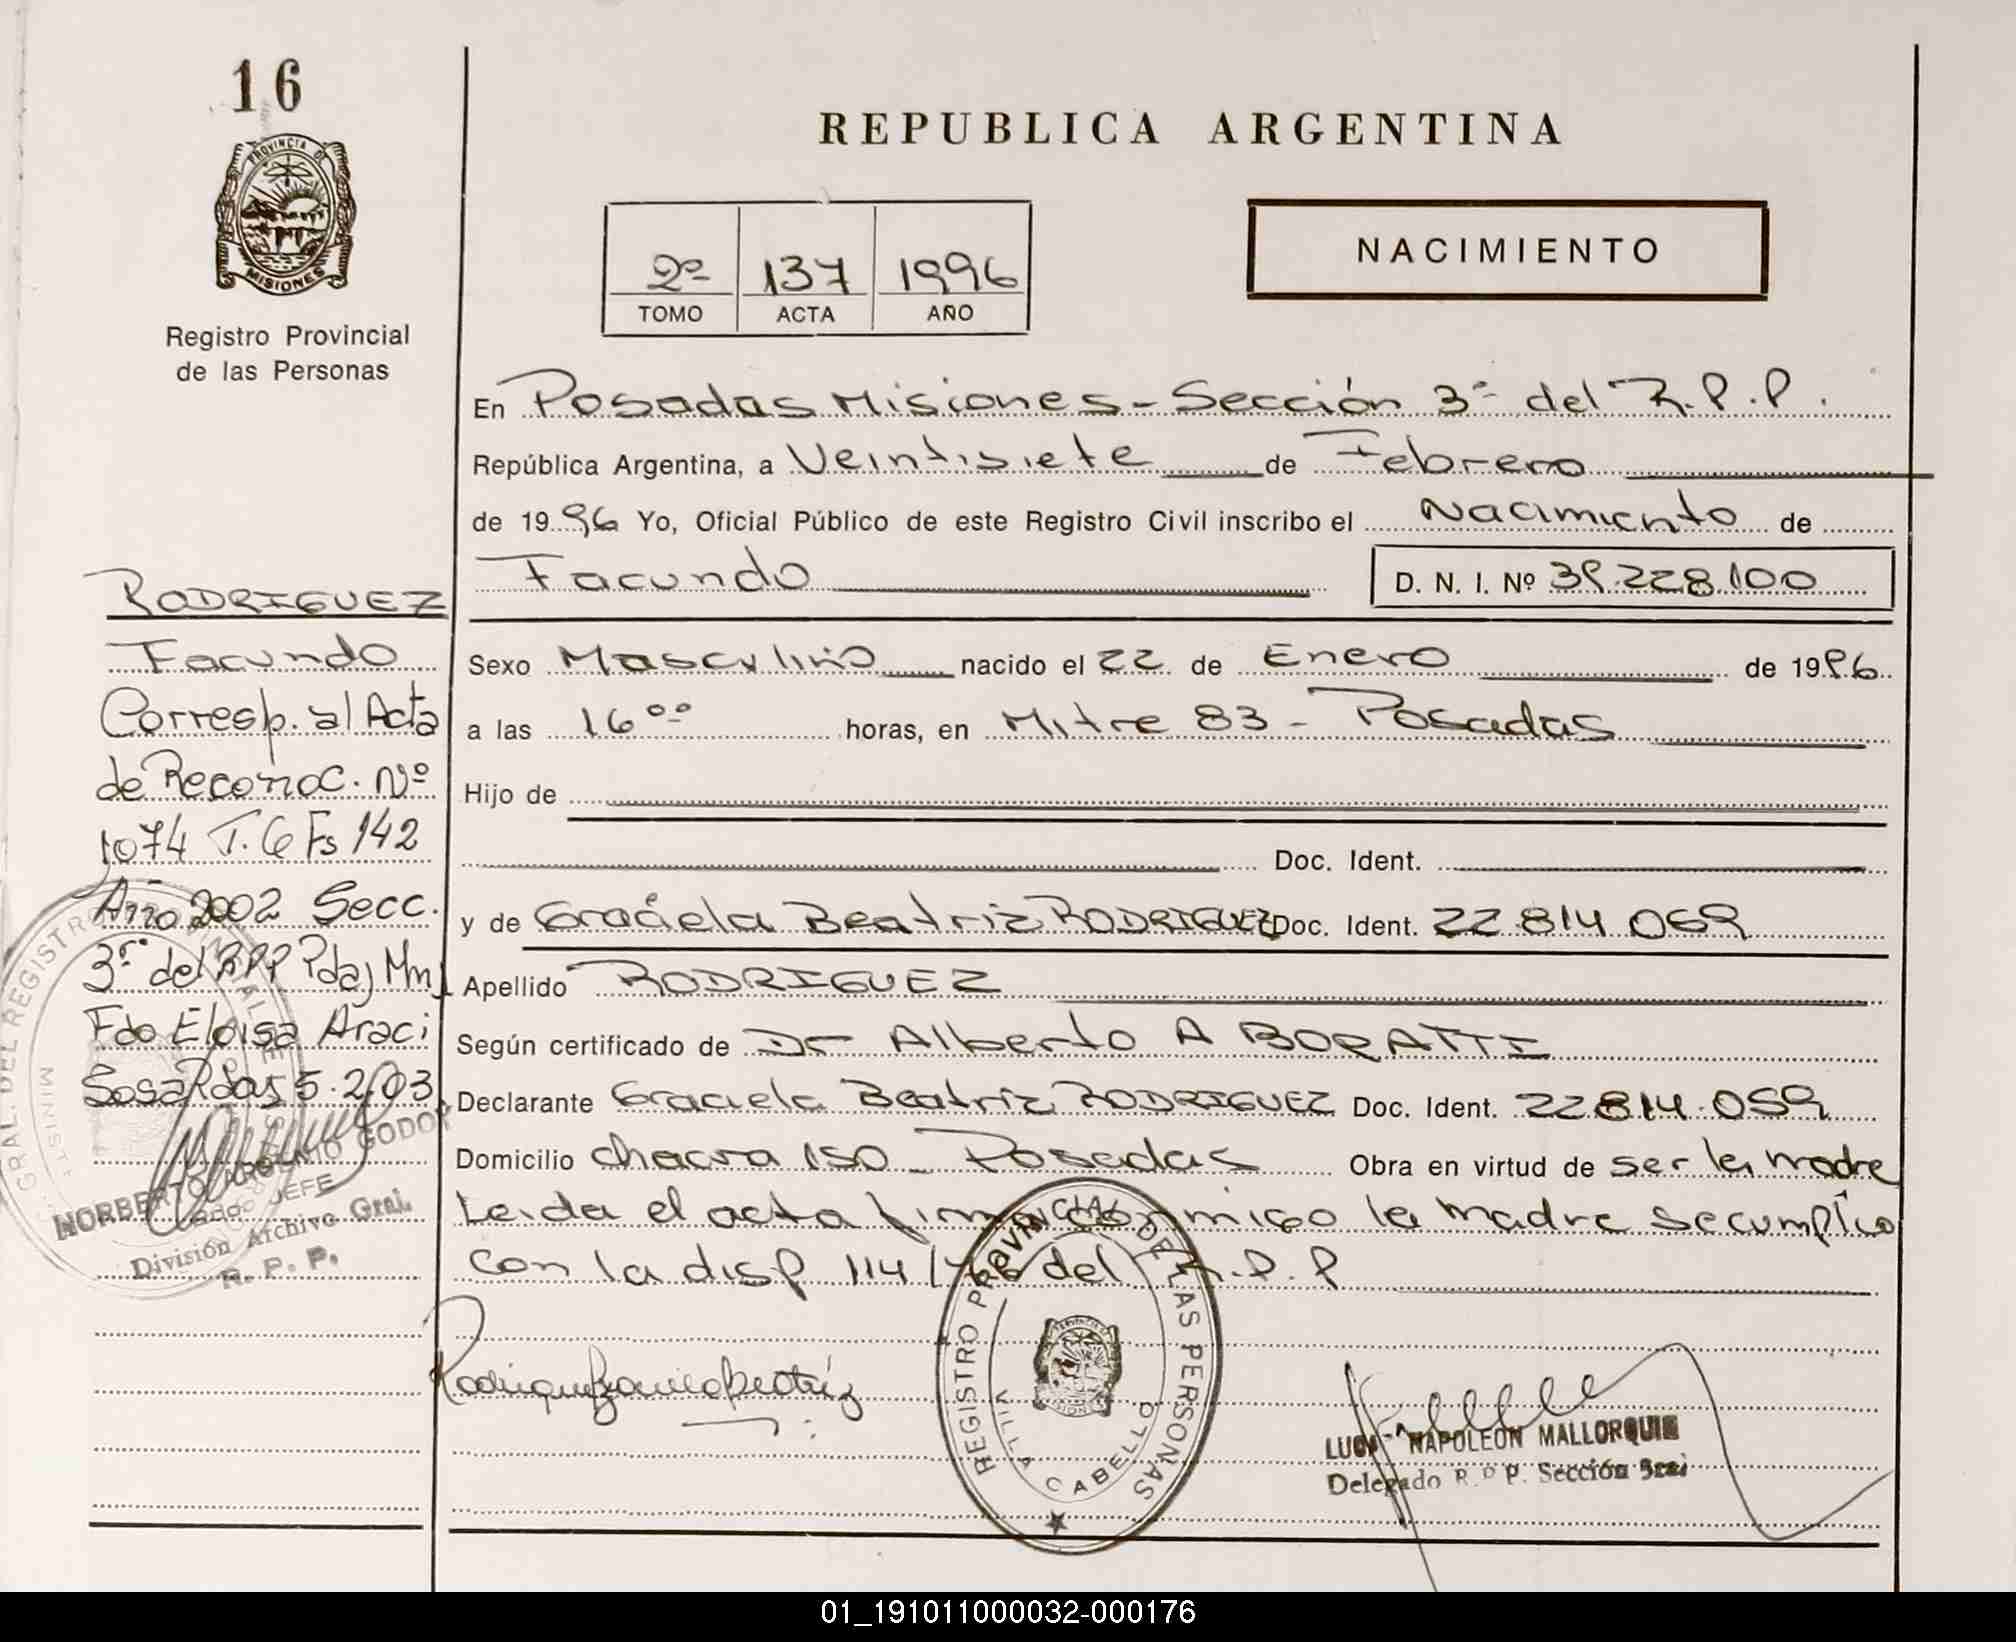 16
PROVINCIA DE
MISIONES
Registro Provincial
de las Personas
RODRIGUEZ
Facundo
Corresp. al Acta
de Reconoc. Nº
1074 T. 6 Fs 142
Año 2002 Secc.
3ª del RPP Pdas Mns
Fdo Eloisa Araci
Sosa Pdas 5.2.03
NORBERTO GODOY
JEFE
División Archivo Gral.
R. P. P.
REPUBLICA ARGENTINA
2º 137 1996
TOMO ACTA AÑO
NACIMIENTO
En Posadas Misiones - Sección 3ª del R.P.P.
República Argentina, a Veintisiete de Febrero
de 1996 Yo, Oficial Público de este Registro Civil inscribo el Nacimiento de
Facundo D. N. I. Nº 39.228.100
Sexo Masculino nacido el 22 de Enero de 1996
a las 16⁰⁰ horas, en Mitre 83 - Posadas
Hijo de
Doc. Ident.
y de Graciela Beatriz RODRIGUEZ Doc. Ident. 22.814.059
Apellido RODRIGUEZ
Según certificado de Dr Alberto A BORATTI
Declarante Graciela Beatriz RODRIGUEZ Doc. Ident. 22.814.059
Domicilio chacra 150 - Posadas Obra en virtud de ser la madre
Leida el acta firma conmigo la madre se cumplio
con la disp 114/ del R.P.P
Rodriguez Graciela Beatriz
REGISTRO PROVINCIAL DE LAS PERSONAS
VILLA CABELLO
NAPOLEON MALLORQUIN
Delegado R. P. P. Sección 3ra
01_191011000032-000176